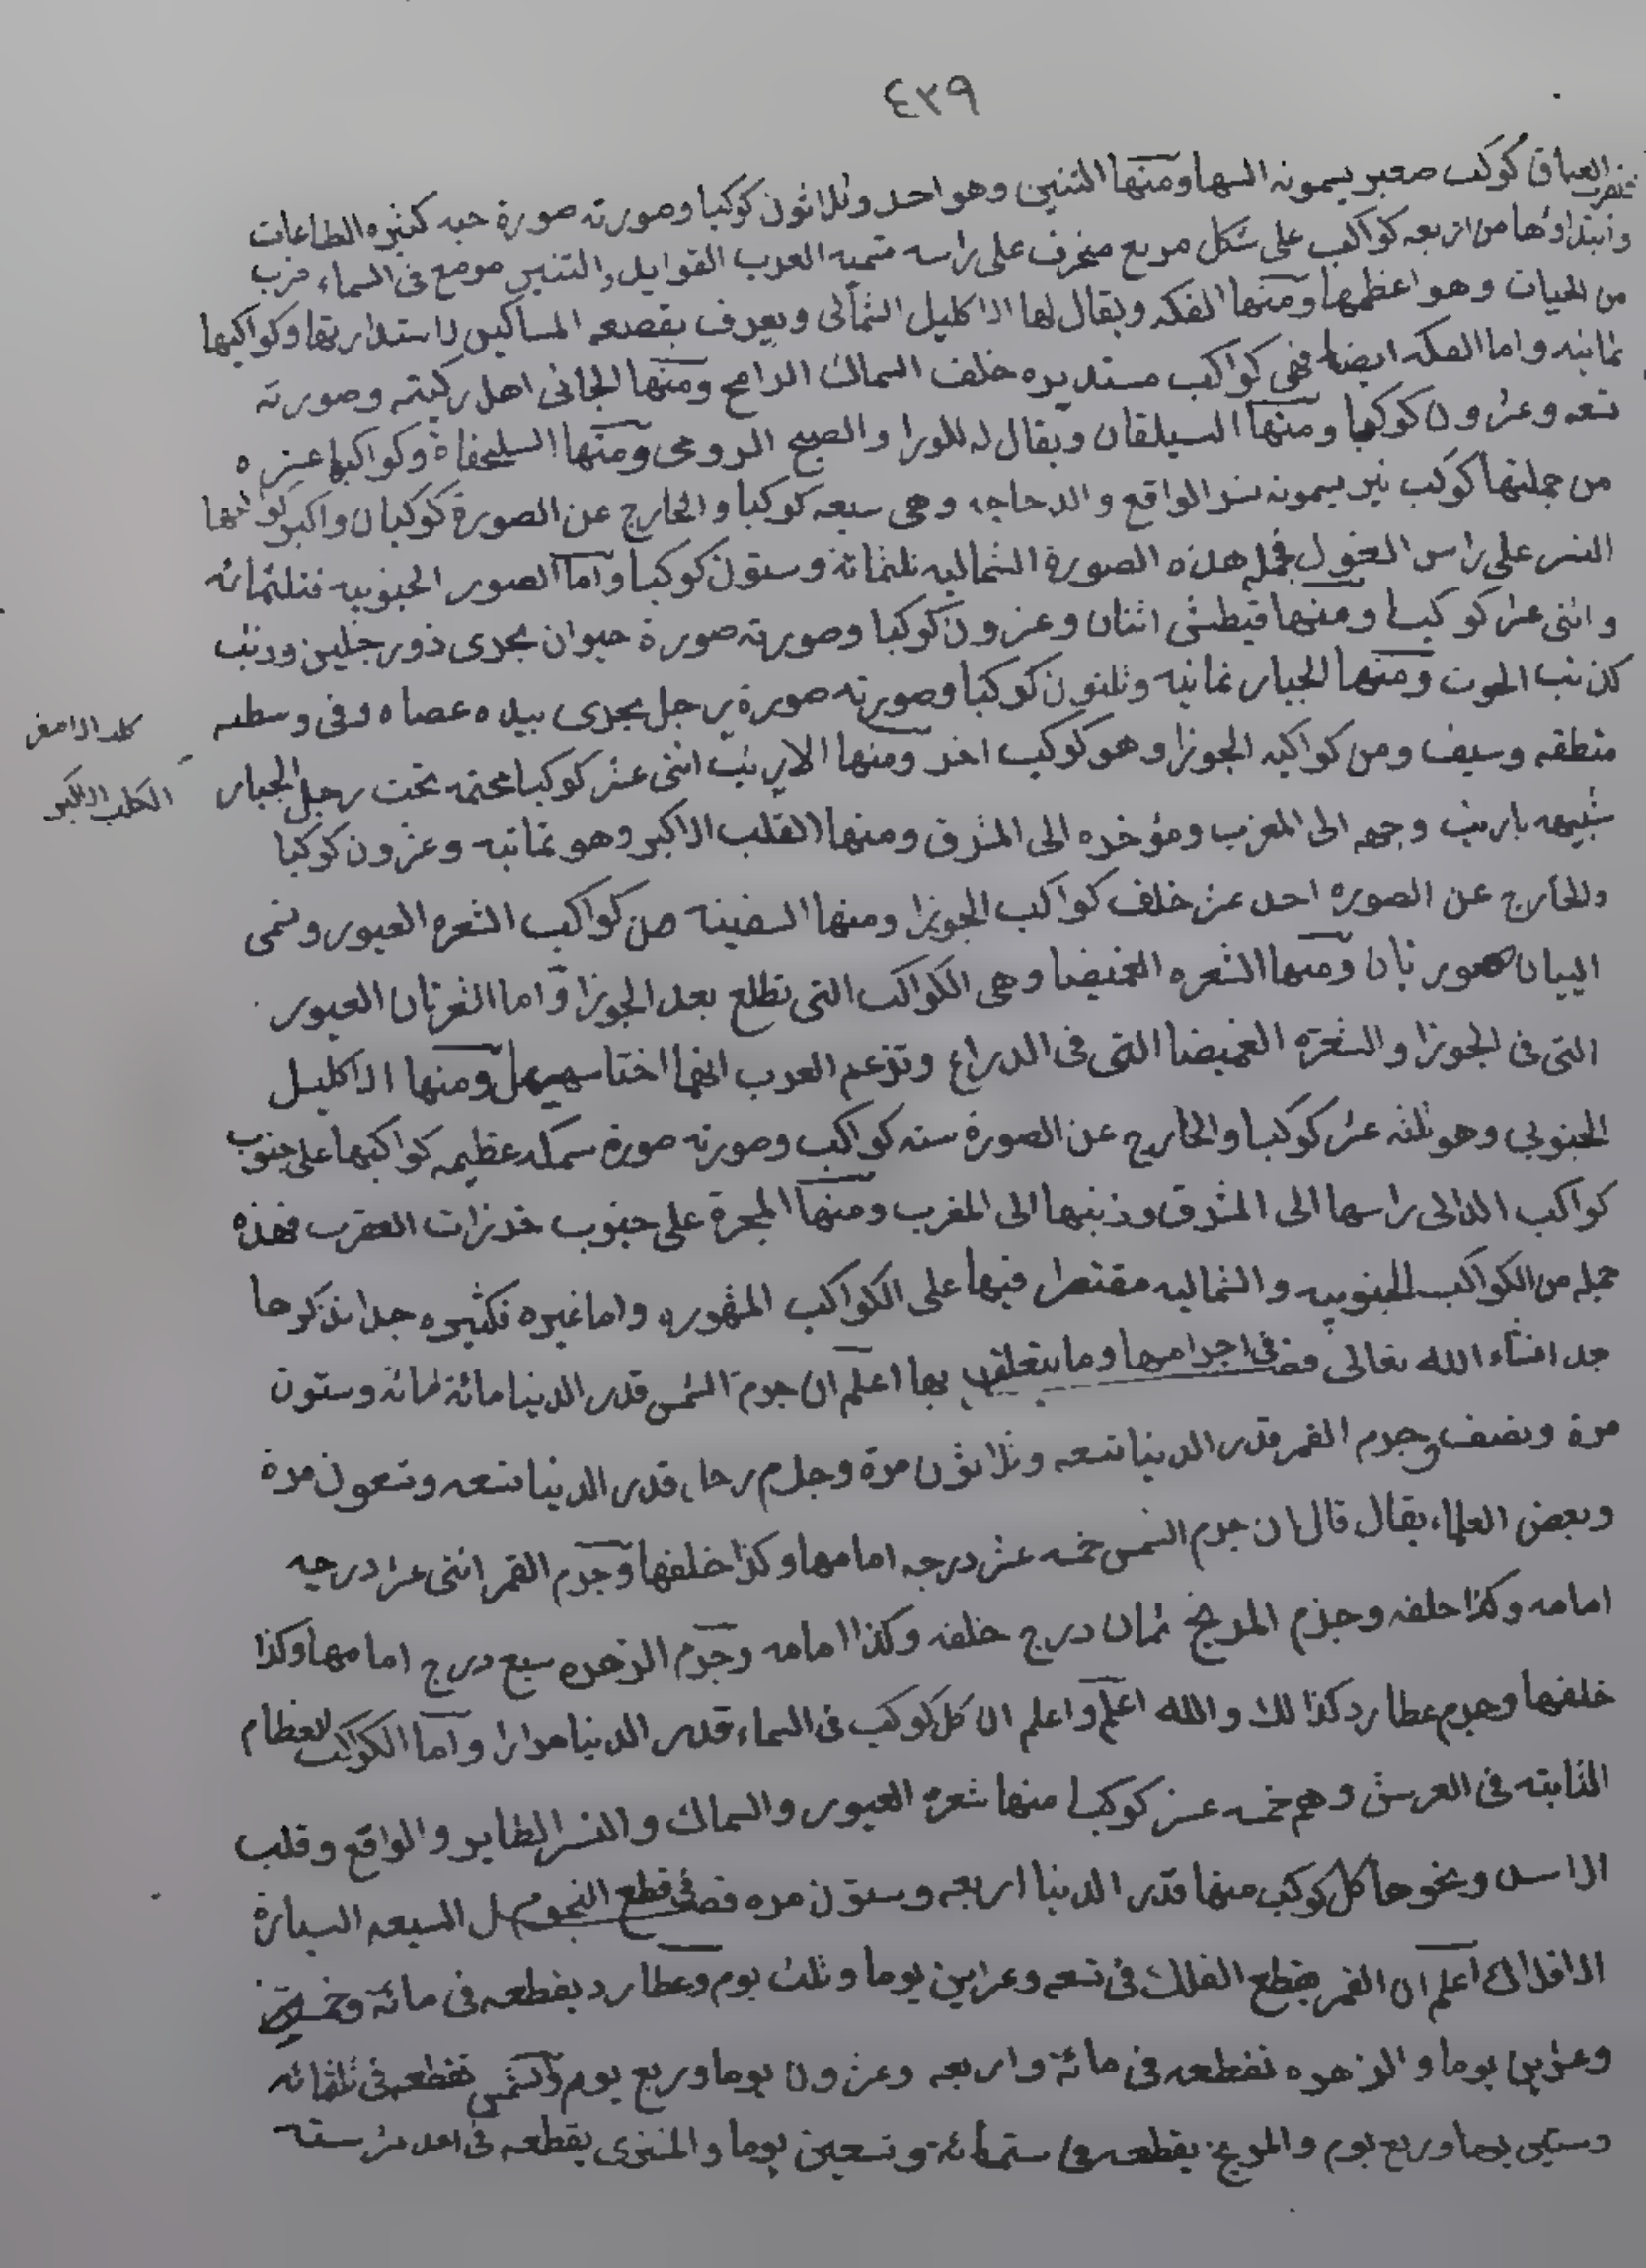 ٤٣٩
العناق كوكب صغير يسمونه السها ومنها التنين وهو احد وثلاثون كوكبا وصورته صورة حيه كثيره الطاعات
وابتداؤها من اربعه كواكب على شكل مربع منحرف على راسه تسميه العرب القوايل والتنين موضع فى السماء ضرب
من الحيات وهو اعظمها ومنها الفكه ويقال لها الاكليل الشمالى ويعرف بقصعه المساكين لاستدارتها وكواكبها
ثمانيه واما الفكه ايضا فهى كواكب مستديره خلف السماك الرامح ومنها الجاثى اهل ركبته وصورته
تسعه وعشرون كوكبا ومنها السيلقان ويقال له اللورا والصبح الرومى ومنها السلحفاة وكواكبها عشره
من جملتها كوكب نير يسمونه نسر الواقع والدجاجه وهى سبعه كوكبا والخارج عن الصورة كوكبان واكبر كواكبها
النسر على راس الغول فجمله هذه الصورة الشماليه ثلثمائة وستون كوكبا واما الصور الجنوبيه فثلثمائه
واثنى عشر كوكبا ومنها قيطش اثنان وعشرون كوكبا وصورته صورة حيوان بحرى ذو رجلين وذنب
كذنب الحوت ومنها الجبار ثمانيه وثلثون كوكبا وصورته صورة رجل بحرى بيده عصاه وفى وسطه
منطقه وسيف ومن كواكبه الجوزا وهو كوكب اخر ومنها الارنب اثنى عشر كوكبا مجتمعه تحت رجل الجبار
كلب الاصغر
الكلب الاكبر
شبيهه بارنب وجهه الى المغرب ومؤخره الى المشرق ومنها القلب الاكبر وهو ثمانيه وعشرون كوكبا
والخارج عن الصوره احد عشر خلف كواكب الجوزا ومنها السفينه من كواكب الشعره العبور وتسمى
البيان عبوريان ومنها الشعره الغميضا وهى الكواكب التى تطلع بعد الجوزا واما الشعرتان العبور
التى فى الجوزا والشعره الغميضا التى فى الدراع وتزعم العرب انهما اختا سهيل ومنها الاكليل
الجنوبى وهو ثلثه عشر كوكبا والخارج عن الصورة سته كواكب وصورته صورة سمكه عظيمه كواكبها على جنوب
كواكب الدالى راسها الى المشرق وذنبها الى المغرب ومنها المجرة على جنوب خرزات العقرب فهذه
جمله من الكواكب الجنوبيه والشماليه مقتصرا فيها على الكواكب المشهوره واما غيره فكثيره جدا نذكرها
جد انشاء الله تعالى فصـ فى اجرامها وما يتعلق بها اعلم ان جرم الشمس قدر الدنيا مائة مائه وستون
مرة ونصف وجرم القمر قدر الدنيا تسعه وثلاثون مرة وجرم زحل قدر الدنيا تسعه وتسعون مرة
وبعض العلماء يقال قال ان جرم الشمس خمسه عشر درجه امامها وكذا خلفها وجرم القمر اثنى عشر درجيه
امامه وكذا خلفه وجرم المريخ ثمان درج خلفه وكذا امامه وجرم الزهره سبع درج امامها وكذا
خلفها وجرم عطارد كذالك والله اعلم واعلم ان كل كوكب فى السماء قدر الدنيا مرارا واما الكواكب العظام
الثابته فى العرش وهم خمسه عشر كوكبا منها شعره العبور والسماك والنسر الطاير والواقع وقلب
الاسد ونحوها كل كوكب منها قدر الدنيا اربعه وستون مره فصـ فى قطع النجوم السبعه السيارة
الافلاك اعلم ان القمر يقطع الفلك فى تسعه وعشرين يوما وثلث يوم وعطارد يقطعه فى مائة وخمسة
وعشرين يوما والزهره تقطعه فى مائة واربعه وعشرون يوما وربع يوم والشمس تقطعه فى ثلثمائه
وستين يوما وربع يوم والمريخ يقطعه فى ستمائة وتسعين يوما والمشترى يقطعه فى احد عشر سنه